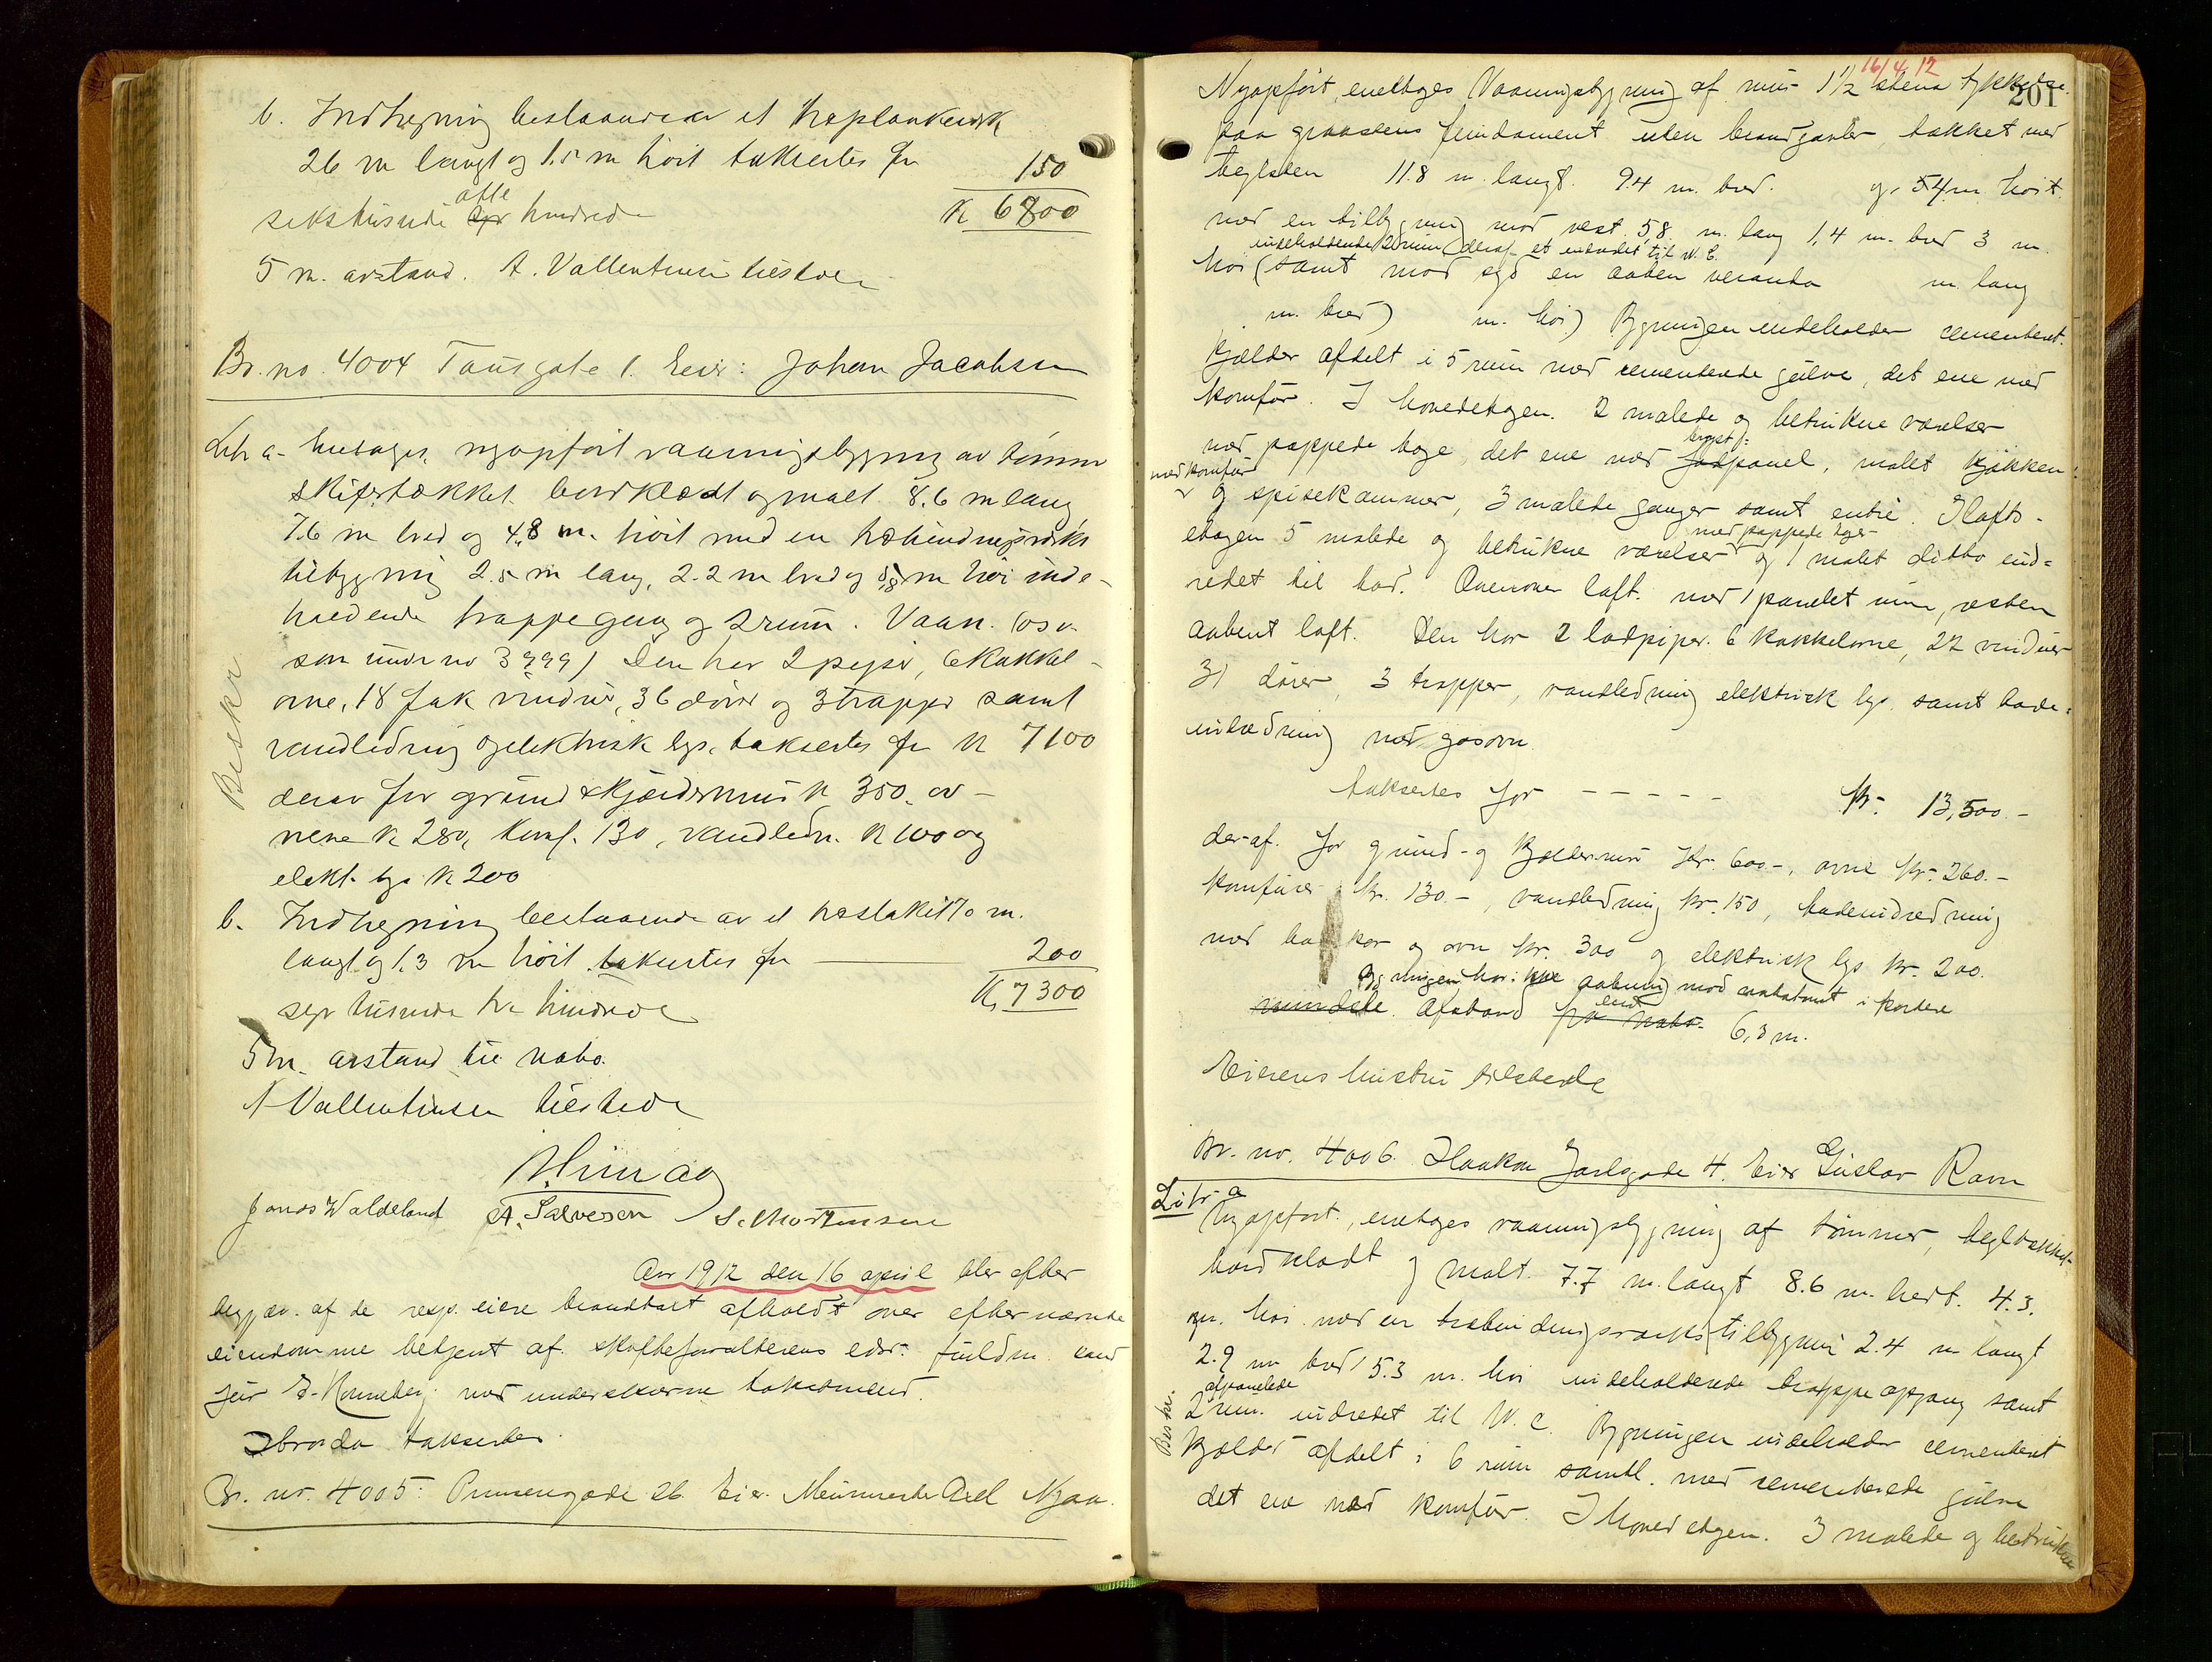 b. Indhegning bestaaende av et træplankeverk
26 m langt og 1.5 m höit taksertes for 150
otte
sekstusinde syv hundrede K 6800
5 m. avstand. A. Vallentinsen tilstede
Br. no. 4004 Tausgate 1. Eier: Johan Jacobsen
Litr a- toetages, nyopført vaaningsbygning av tømmer
skifertækket bordklædt og malt 8.6 m lang
7.6 m bred og 4,8 m. höit med en træbindingsverks
tilbygning 2.5 m lang, 2.2 m bred og 5,8 m höi inde-
holdende trappegang og 2 rum. Vaan. (osv.
som under no 3999) Den har 2 piper, 6 kakkel-
ovne, 18 fak vinduer, 36 dører og 3 trapper samt
vandledning og elektrisk lys, taksertes for K 7100
derav for grund & kjældermur K 350, ov-
nene K 280, Komf. 130, vandledn. K 100 og
elekt. lys K 200
Beskr
b. Indhegning bestaaende av et træstakit 70 m.
langt og 1.3 m höit taksertes for 200
syv tusinde tre hundrede K 7300
5 m. avstand til nabo.
A Vallentinsen tilstede
Jonas Waldeland A. Salvesen S. Mortensen
Aar 1912 den 16 april blev efter
begjær. af de resp. eiere brandtakst afholdt over efternævnte
eiendomme betjent af skifteforvalterens edsv. fuldm. cand
jur E. Konneberg med underskrevne takstmænd
Hvorda taksertes
Br. no. 4005: Prinsensgade 26 Eier Murmester Axel Nyaa.
16/4 12
201
Nyopført, enetages Vaaningsbygning af mur 1 1/2 stens tykkelse
paa graastens fundament uten brandgavler, tækket med
teglsten 11.8 m. langt. 9.4 m. bred. og 5.4 m. höit.
med en tilbygning mod vest 5,8 m. lang 1,4 m. bred 3 m.
indeholdende 2 rum (deraf et indredet til W. C.
höi (samt mod syd en aaben veranda m. lang
m. bred) m. höi) Bygningen indeholder cementeret
kjælder afdelt i 5 rum med cementerede gulve, det ene med
komfør. I hovedetagen. 2 malede og betrukne værelser
bryst-
med pappede tage, det ene med fodpanel, malet kjøkken
med komfør
og spisekammer, 3 malede ganger samt entré. I lofts-
med pappede tage
etagen 5 malede og betrukne værelser og 1 malet ditto ind-
redet til bad. Ovenover loft. med 1 panelet rum, resten
aabent loft. Den har 2 lodpiper. 6 kakkelovne, 22 vinduer
31 dører, 3 trapper, vandledning elektrisk lys, samt bade-
indredning med gasovn
taksertes for - - - - - Kr. 13,500.-
der-af. for grund- og kjældermur Kr. 600.-, ovne Kr. 260.-
komfører Kr. 130.-, vandledning Kr. 150, badeindredning
med badekar og ovn Kr. 300 og elektrisk lys Kr. 200.
Bygningen har ikke aabning mod nabotomt i kortere
mindste Afstand fra nabo- end 6,3 m.
Eierens hustru tilstede
Br. no. 4006. Haakon Jarlsgade 4. Eier Gustav Ravn
Litr. a
Nyopført, enetages vaaningsbygning af tømmer, tegltækket
bordklædt og malt. 7.7 m. langt 8.6 m. bredt. 4.3.
m. höi med en træbindingsverks tilbygning 2.4 m langt
2.9 m bred 5.3 m. höi indeholdende trappeopgang samt
afpanelede
2 rum. indredet til W. C. Bygningen indeholder cementeret
Beskr.
kjælder afdelt i 6 rum samtl. med cementerede gulve
det ene med komfør. I hovedetagen. 3 malede og betrukne